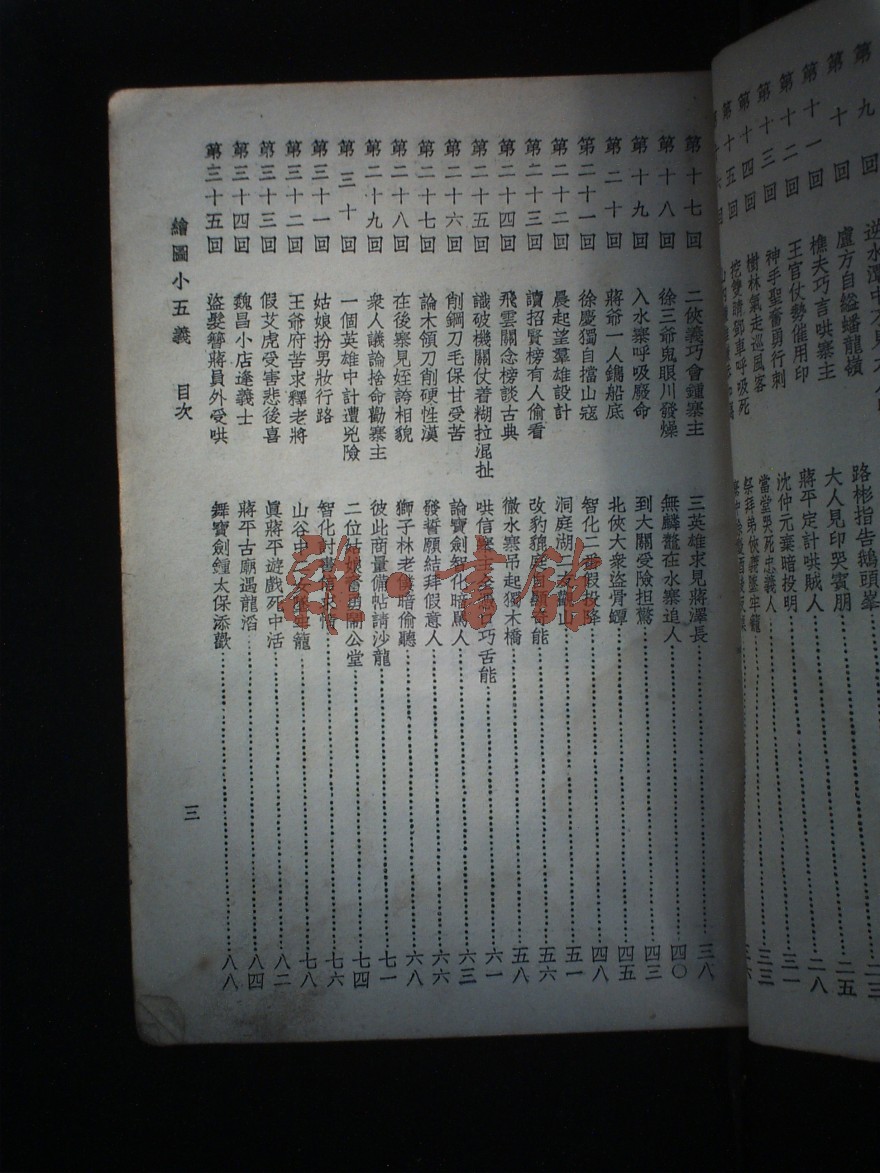 第九回 逆水潭中不見大人 路彬指告鵝頭峯 二三
第十回 盧方自縊蟠龍嶺 大人見印哭賓朋 二五
第十一回 樵夫巧言哄寨主 蔣平定計哄賊人 二八
第十二回 王官仗勢催用印 沈仲元棄暗投明 三一
第十三回 神手聖奮勇行刺 當堂哭死忠義人 三三
第十四回 樹林氣走巡風客 祭拜弟俠義墜牢籠 三六
第十五回 挖雙睛鄧車呼吸死
第十七回 二俠義巧會鍾寨主 三英雄求見蔣澤長 三八
第十八回 徐三爺鬼眼川發燥 無鱗鼇在水寨追人 四〇
第十九回 入水寨呼吸廢命 到大關受險担驚 四三
第二十回 蔣爺一人鑄船底 北俠大衆盜骨罈 四五
第二十一回 徐慶獨自擋山寇 智化二番假投降 四八
第二十二回 晨起望羣雄設計 洞庭湖二友觀山 五一
第二十三回 讀招賢榜有人偷看 改豹貔庭自顯奇能 五六
第二十四回 飛雲關念榜談古典 徹水寨吊起獨木橋 五八
第二十五回 識破機關仗着糊拉混扯 哄信寨主全憑口巧舌能 六一
第二十六回 削鋼刀毛保甘受苦 論寶劍智化暗罵人 六三
第二十七回 論木領刀削硬性漢 發誓願結拜假意人 六六
第二十八回 在後寨見姪誇相貌 獅子林老僕暗偷聽 六八
第二十九回 衆人議論捨命勸寨主 彼此商量備帖請沙龍 七一
第三十回 一個英雄中計遭兇險 二位姑娘奮勇鬧公堂 七四
第三十一回 姑娘扮男妝行路 智化討書信求情 七六
第三十二回 王爺府苦求釋老將 山谷中 牢籠 七八
第三十三回 假艾虎受害悲後喜 眞蔣平遊戲死中活 八二
第三十四回 魏昌小店逢義士 蔣平古廟遇龍滔 八四
第三十五回 盜髮簪蔣員外受哄 舞寶劍鍾太保添歡 八八
繪圖小五義 目次 三
雜·書館